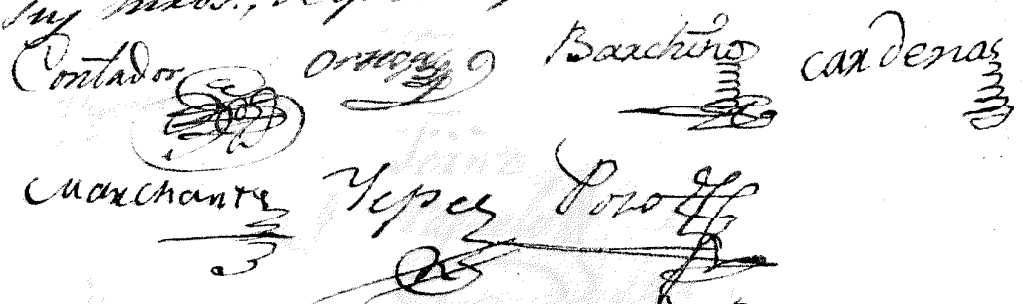 Contador Ortega Barchino Cardenas
Marchante Yepes Poro